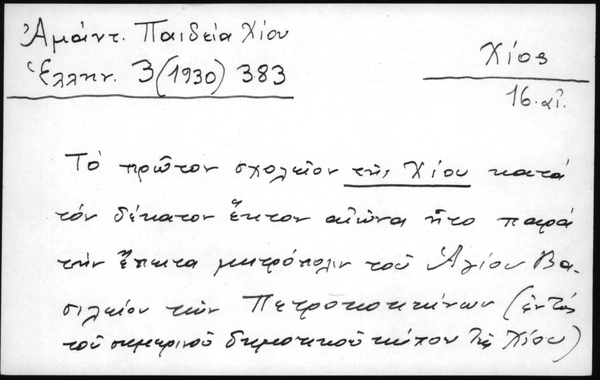 Ἀμάντ. Παιδεία Χίου
Ἑλλην. 3 (1930) 383
Χίος
16. αἰ.
Τό πρῶτον σχολεῖον τῆς Χίου κατά
τόν δέκατον ἕκτον αἰῶνα ἦτο παρά
τήν ἔπειτα μητρόπολιν τοῦ Ἁγίου Βα-
σιλείου τῶν Πετροκοκκίνων (ἐντός
τοῦ σημερινοῦ δημοτικοῦ κήπου τῆς Χίου)